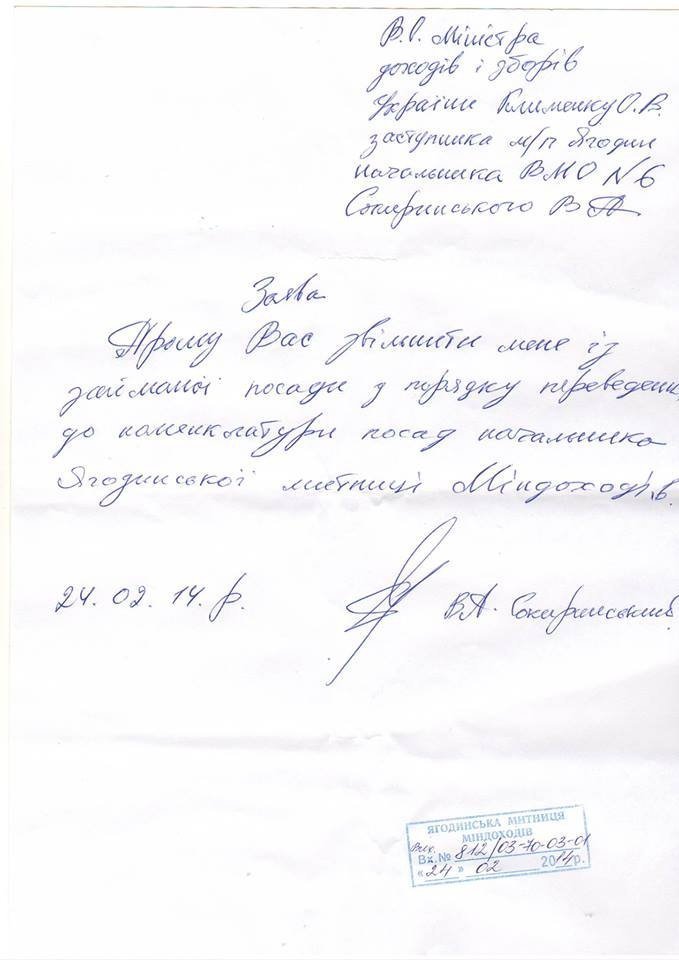 В.О. Міністра
доходів і зборів
України Клименку О.В.
заступника м/п Ягодин
начальника ВМО №6
Сокиринського В.А
Заява
Прошу Вас звільнити мене із
займаної посади у порядку переведення
до номенклатури посад начальника
Ягодинської митниці Міндоходів.
24. 02. 14. р.
В.А. Сокиринський
ЯГОДИНСЬКА МИТНИЦЯ
МІНДОХОДІВ
Вх.№ 812/03-70-03-01
«24» 02 2014р.